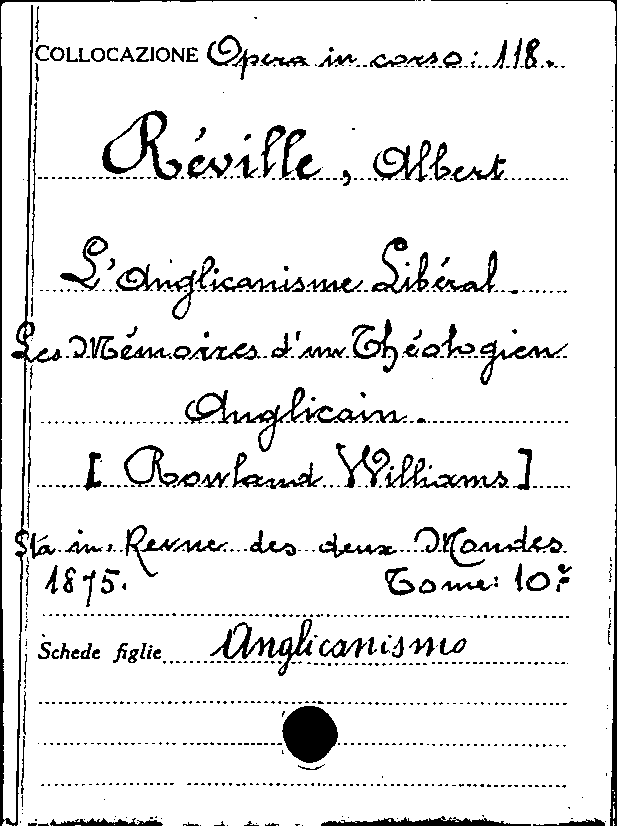 COLLOCAZIONE Opera in corso: 118.
Réville, Albert
L'Anglicanisme Libéral.
Les Mémoires d'un Théologien
Anglicain.
[ Rowland Williams ]
Sta in: Revue des deux Mondes
1875. Tome: 10º
Schede figlie Anglicanismo